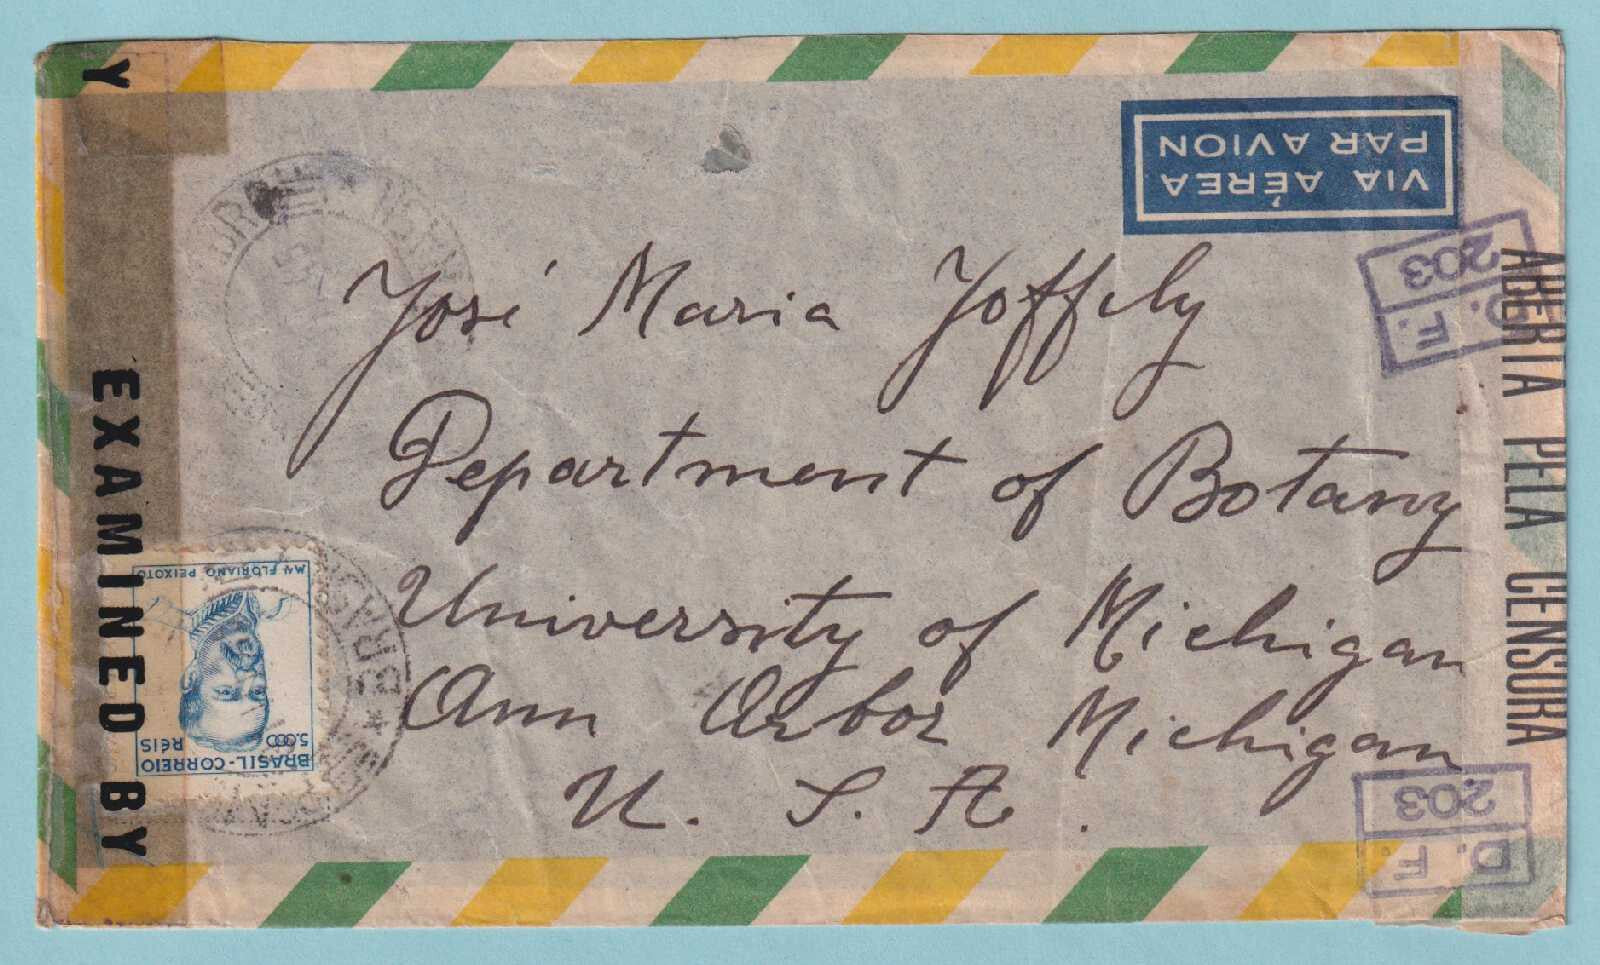 VIA AÉREA
PAR AVION
José Maria Joffely
Department of Botany
University of Michigan
Ann Arbor Michigan
U. S. A.
Y
EXAMINED BY
ABERTA PELA CENSURA
D. F.
203
D. F.
203
BRASIL-CORREIO
5.000
RÉIS
FLORIANO PEIXOTO
BRAS